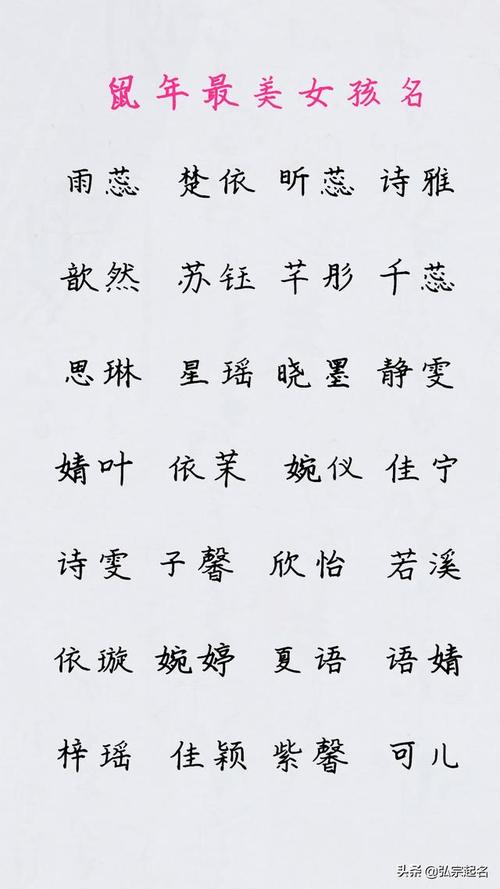 鼠年最美女孩名
雨蕊 楚依 昕蕊 诗雅
歆然 苏钰 芊彤 千蕊
思琳 星瑶 晓墨 静雯
婧叶 依茉 婉仪 佳宁
诗雯 子馨 欣怡 若溪
依璇 婉婷 夏语 语婧
梓瑶 佳颖 紫馨 可儿
头条 @弘宗起名